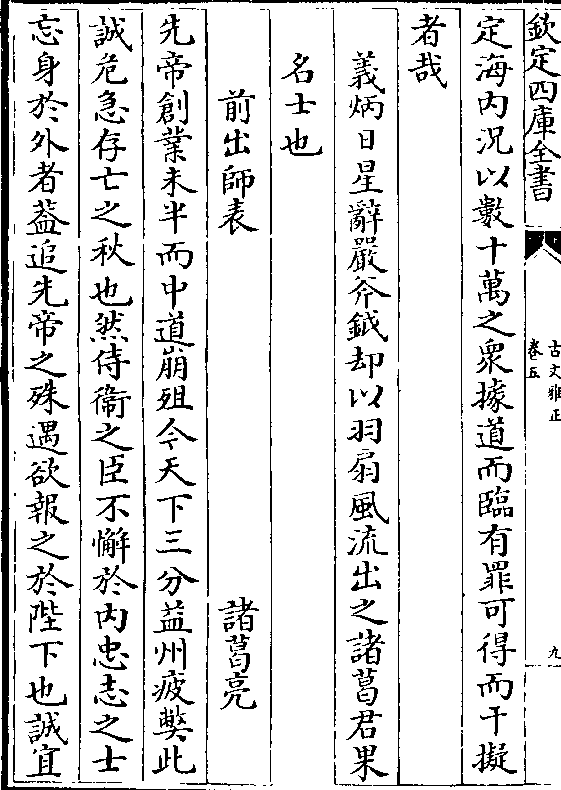 欽定四庫全書
古文雅正
卷五
九
定海内況以數十萬之衆據道而臨有罪可得而干擬
者哉
義炳日星辭嚴斧鉞却以羽扇風流出之諸葛君果
名士也
前出師表 諸葛亮
先帝創業未半而中道崩殂今天下三分益州疲弊此
誠危急存亡之秋也然侍衛之臣不懈於内忠志之士
忘身於外者葢追先帝之殊遇欲報之於陛下也誠宜